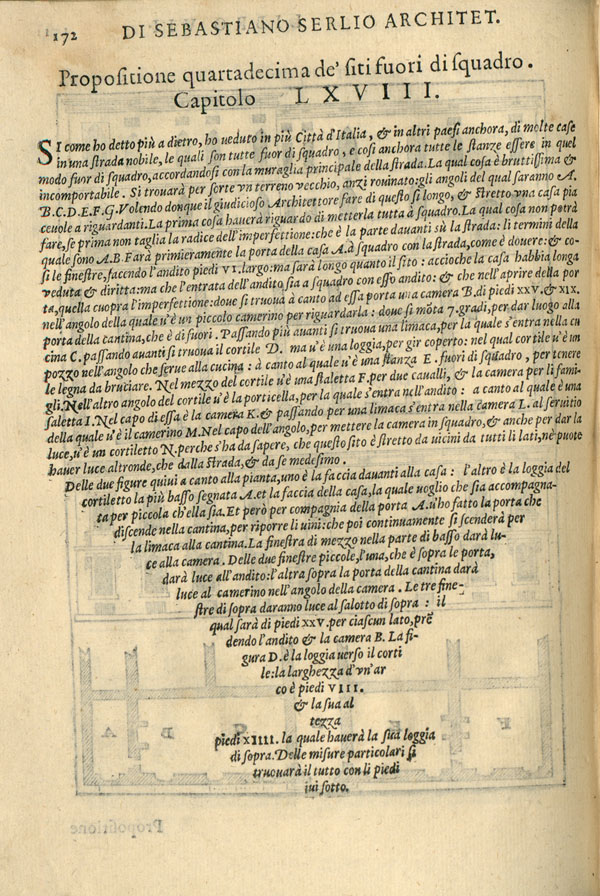 172 DI SEBASTIANO SERLIO ARCHITET.
Propositione quartadecima de' siti fuori di squadro.
Capitolo LXVIII.
SI come ho detto più a dietro, ho ueduto in più Città d'Italia, & in altri paesi anchora, di molte case
in una strada nobile, le quali son tutte fuor di squadro, e così anchora tutte le stanze essere in quel
modo fuor di squadro, accordandosi con la muraglia principale della strada. La qual cosa è bruttissima &
incomportabile. Si trouarà per sorte vn terreno vecchio, anzi rouinato: gli angoli del qual saranno A.
B. C. D. E. F. G. Volendo donque il giudicioso Architettore fare di questo sì longo, & stretto vna casa pia
ceuole a riguardanti. La prima cosa hauerà riguardo di metterla tutta à squadro. La qual cosa non potrà
fare, se prima non taglia la radice dell'imperfettione: che è la parte dauanti sù la strada: li termini della
quale sono A. B. Farà primieramente la porta della casa A. à squadro con la strada, come è douere: & co-
sì le finestre, facendo l'andito piedi VI. largo: ma sarà longo quanto il sito: accioche la casa habbia longa
veduta & diritta: ma che l'entrata dell'andito sia a squadro con esso andito: & che nell'aprire della por
ta, quella cuopra l'imperfettione: doue si truouà à canto ad essa porta una camera B. di piedi XXV. & XIX.
nell'angolo della quale u'è un piccolo camerino per riguardarla: doue si mōta 7. gradi, per dar luogo alla
porta della cantina, che è di fuori. Passando più auanti si truoua una limaca, per la quale s'entra nella cu
cina C. passando auanti si truoua il cortile D. ma u'è una loggia, per gir coperto: nel qual cortile u'è un
pozzo nell'angolo che serue alla cucina: à canto al quale u'è una stanza E. fuori di squadro, per tenere
le legna da bruciare. Nel mezzo del cortile u'è una stalletta F. per due caualli, & la camera per li fami-
gli. Nell'altro angolo del cortile u'è la porticella, per la quale s'entra nell'andito: a canto al quale è una
saletta I. Nel capo di essa è la camera K. & passando per una limaca s'entra nella camera L. al seruitio
della quale u'è il camerino M. Nel capo dell'angolo, per mettere la camera in squadro, & anche per dar la
luce, u'è un cortiletto N. perche s'ha da sapere, che questo sito è stretto da uicini da tutti li lati, nè puote
hauer luce altronde, che dalla strada, & da se medesimo.
Delle due figure quiui a canto alla pianta, uno è la faccia dauanti alla casa: l'altro è la loggia del
cortiletto la più basso segnata A. et la faccia della casa, la quale uoglio che sia accompagna-
ta per piccola ch'ella sia. Et però per compagnia della porta A. u'ho fatto la porta che
discende nella cantina, per riporre li uini: che poi continuamente si scenderà per
la limaca alla cantina. La finestra di mezzo nella parte di basso darà lu-
ce alla camera. Delle due finestre piccole, l'una, che è sopra le porta,
darà luce all'andito: l'altra sopra la porta della cantina darà
luce al camerino nell'angolo della camera. Le tre fine-
stre di sopra daranno luce al salotto di sopra: il
qual sarà di piedi XXV. per ciascun lato, prē
dendo l'andito & la camera B. La fi-
gura D. è la loggia uerso il corti
le: la larghezza d'vn'ar
co è piedi VIII.
& la sua al
tezza
piedi XIIII. la quale hauerà la sua loggia
di sopra. Delle misure particolari si
truouarà il tutto con li piedi
iui sotto.
Propositione